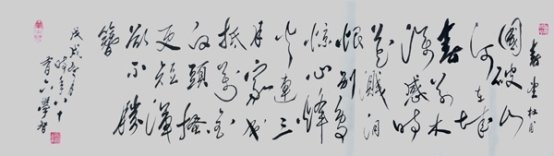 春望 杜甫
國破山
河在城
春草木
深感時
花濺泪
恨別鳥
惊心烽
火連三
月家书
抵万金
白頭搔
更短渾
欲不勝
簪
戊戌
時年八十